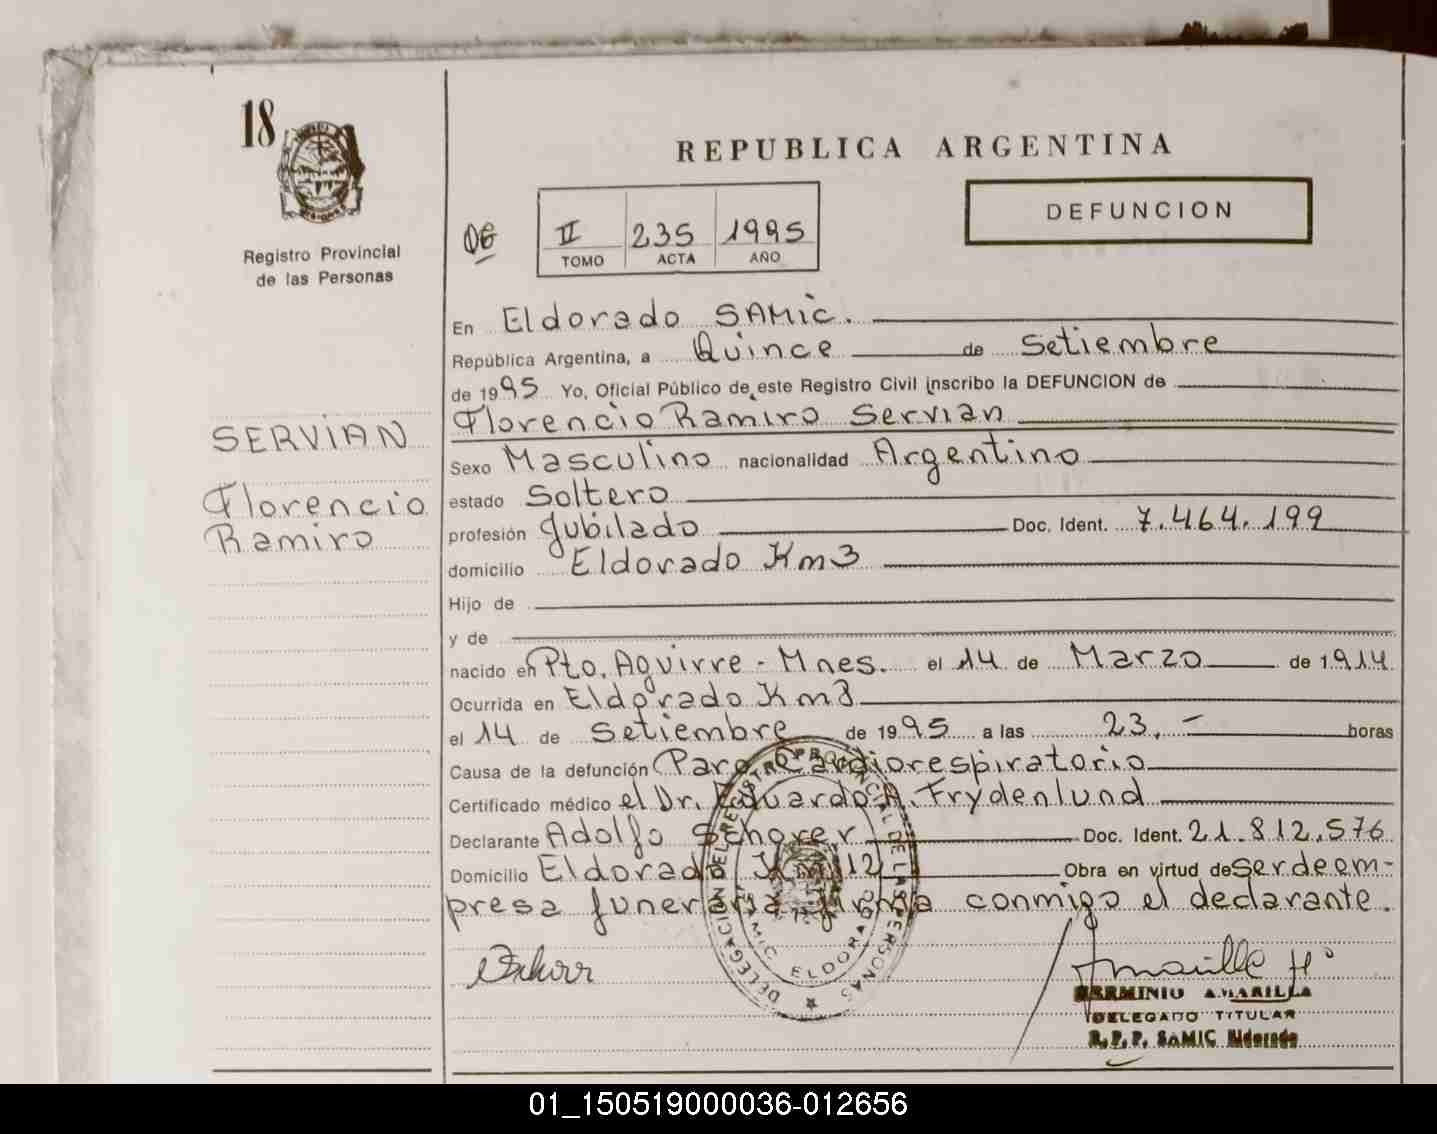 18
Registro Provincial
de las Personas
REPUBLICA ARGENTINA
DEFUNCION
II 235 1995
TOMO ACTA AÑO
En Eldorado SAMic.
República Argentina, a Quince de Setiembre
de 1995 Yo, Oficial Público de este Registro Civil inscribo la DEFUNCION de
Florencio Ramiro Servian
SERVIAN
Florencio
Ramiro
Sexo Masculino nacionalidad Argentino
estado Soltero
profesión Jubilado Doc. Ident. 7.464.199
domicilio Eldorado Km3
Hijo de
y de
nacido en Pto. Aguirre - Mnes. el 14 de Marzo de 1914
Ocurrida en Eldorado Km3
el 14 de Setiembre de 1995 a las 23.- horas
Causa de la defunción Paro Cardiorespiratorio
Certificado médico el Dr. Eduardo A. Frydenlund
Declarante Adolfo Schorer Doc. Ident. 21.812.576
Domicilio Eldorado Km 12 Obra en virtud de ser de em-
presa funeraria firma conmigo el declarante.
DELEGACION DEL REGISTRO PROVINCIAL DE LAS PERSONAS
SAMIC ELDORADO
Amarilla Hº
HERMINIO AMARILLA
DELEGADO TITULAR
R.P.P. SAMIC Eldorado
01_150519000036-012656